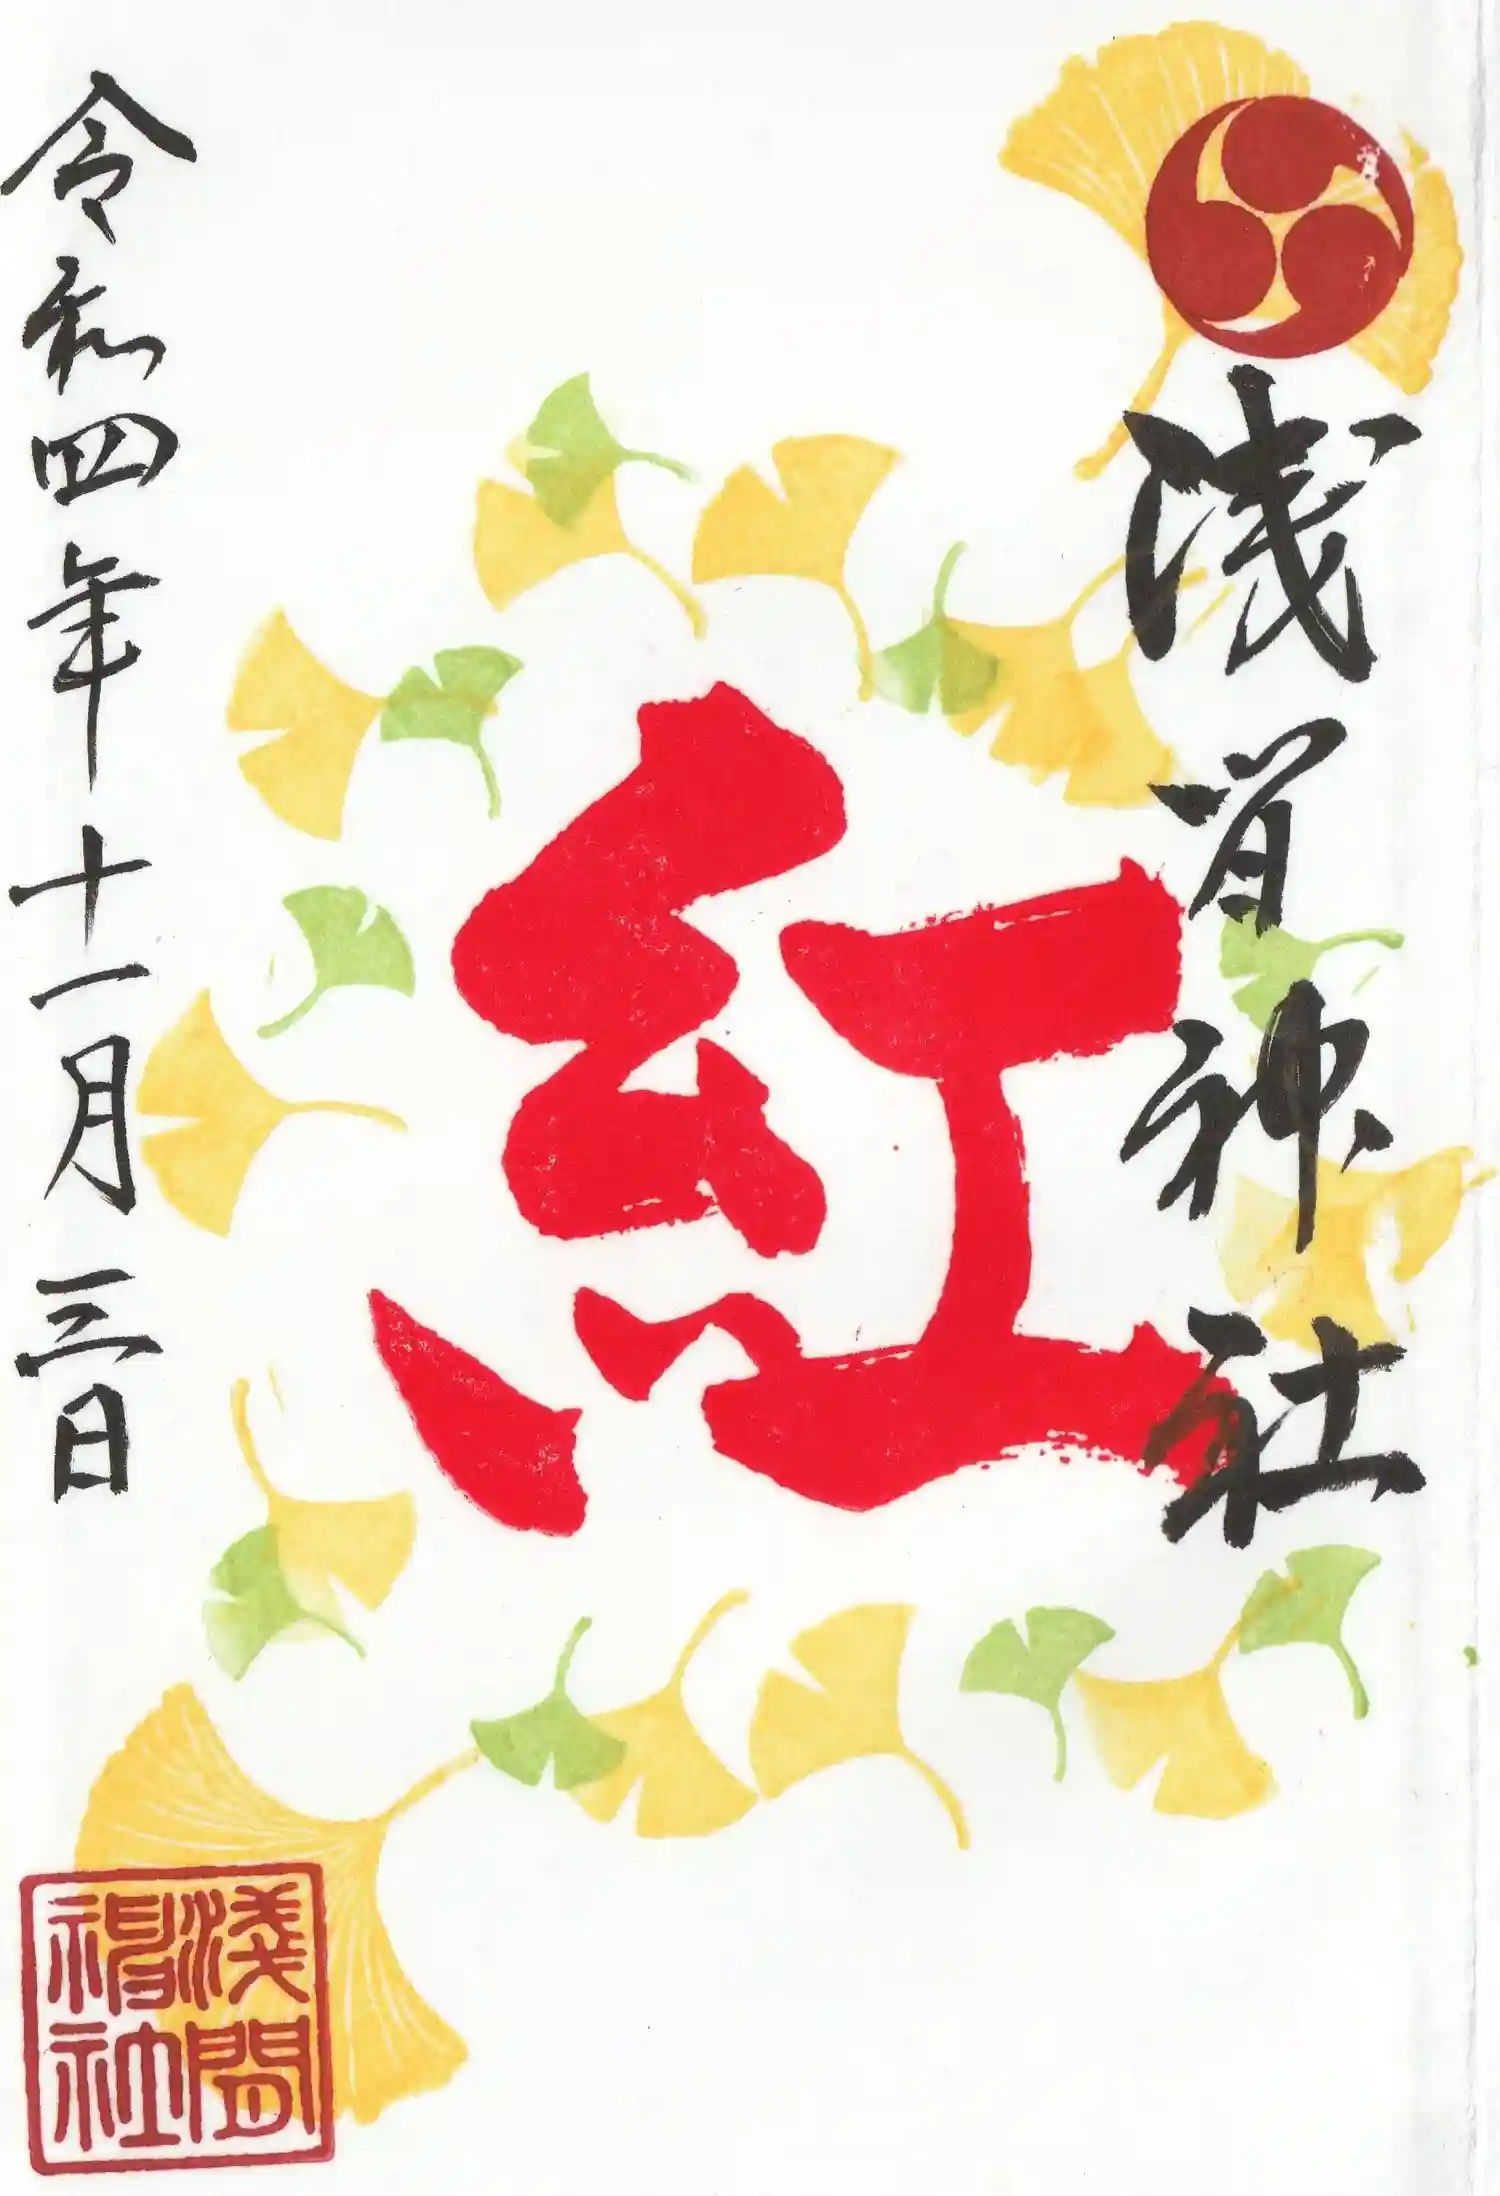 浅間神社
紅
令和四年十一月三日
浅間
神社